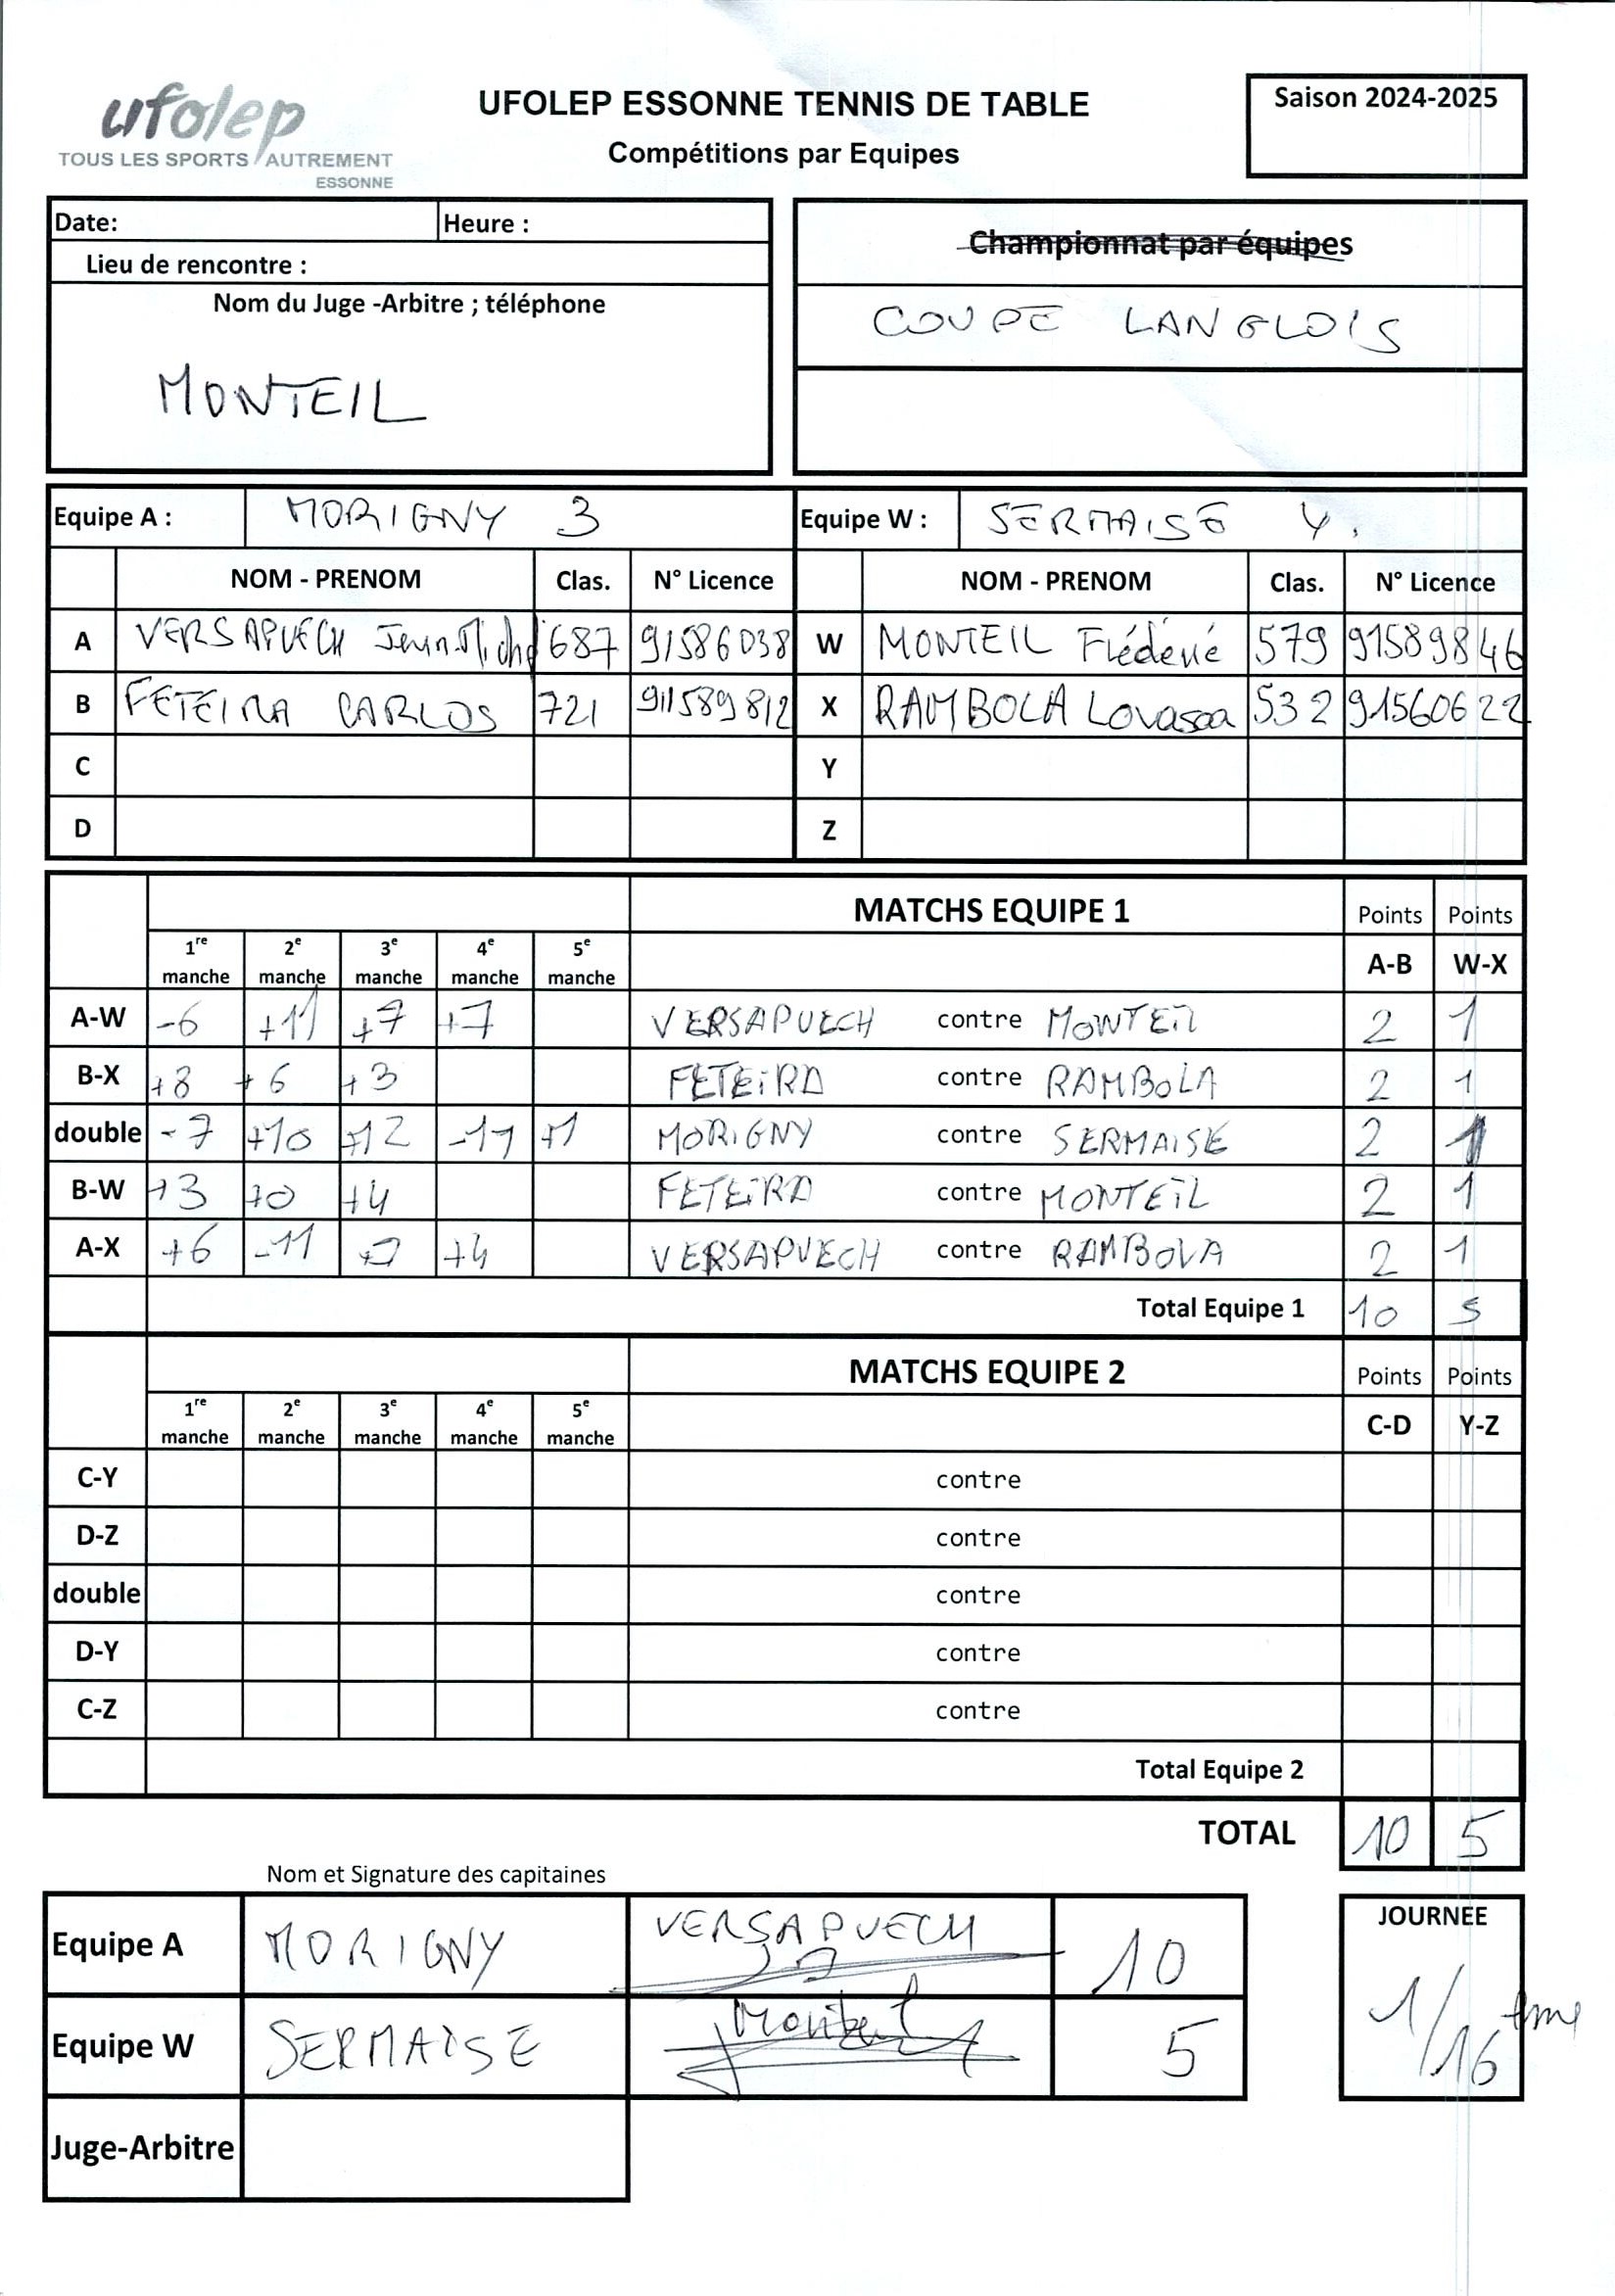 ufolep
TOUS LES SPORTS AUTREMENT
ESSONNE
UFOLEP ESSONNE TENNIS DE TABLE
Compétitions par Equipes
Saison 2024-2025
Date: Heure :
Lieu de rencontre :
Nom du Juge -Arbitre ; téléphone
MONTEIL
Championnat par équipes
COUPE LANGLOIS
Equipe A : MORIGNY 3 Equipe W : SERMAISE 4.
NOM - PRENOM Clas. N° Licence NOM - PRENOM Clas. N° Licence
A VERSAPUECH Jean Michel 687 91586038 W MONTEIL Frédéric 579 91589846
B FETEIRA CARLOS 721 911589812 X RAMBOLA Lovasoa 532 91560622
C Y
D Z
MATCHS EQUIPE 1 Points Points
1re manche 2e manche 3e manche 4e manche 5e manche A-B W-X
A-W -6 +11 +7 +7 VERSAPUECH contre MONTEIL 2 1
B-X +8 +6 +3 FETEIRA contre RAMBOLA 2 1
double -7 +10 +12 -11 +1 MORIGNY contre SERMAISE 2 1
B-W +3 +0 +4 FETEIRA contre MONTEIL 2 1
A-X +6 -11 +4 VERSAPUECH contre RAMBOLA 2 1
Total Equipe 1 10 5
MATCHS EQUIPE 2 Points Points
1re manche 2e manche 3e manche 4e manche 5e manche C-D Y-Z
C-Y contre
D-Z contre
double contre
D-Y contre
C-Z contre
Total Equipe 2
TOTAL 10 5
Nom et Signature des capitaines
Equipe A MORIGNY VERSAPUECH 10
Equipe W SERMAISE Monteil 5
Juge-Arbitre
JOURNEE
1/16 ème